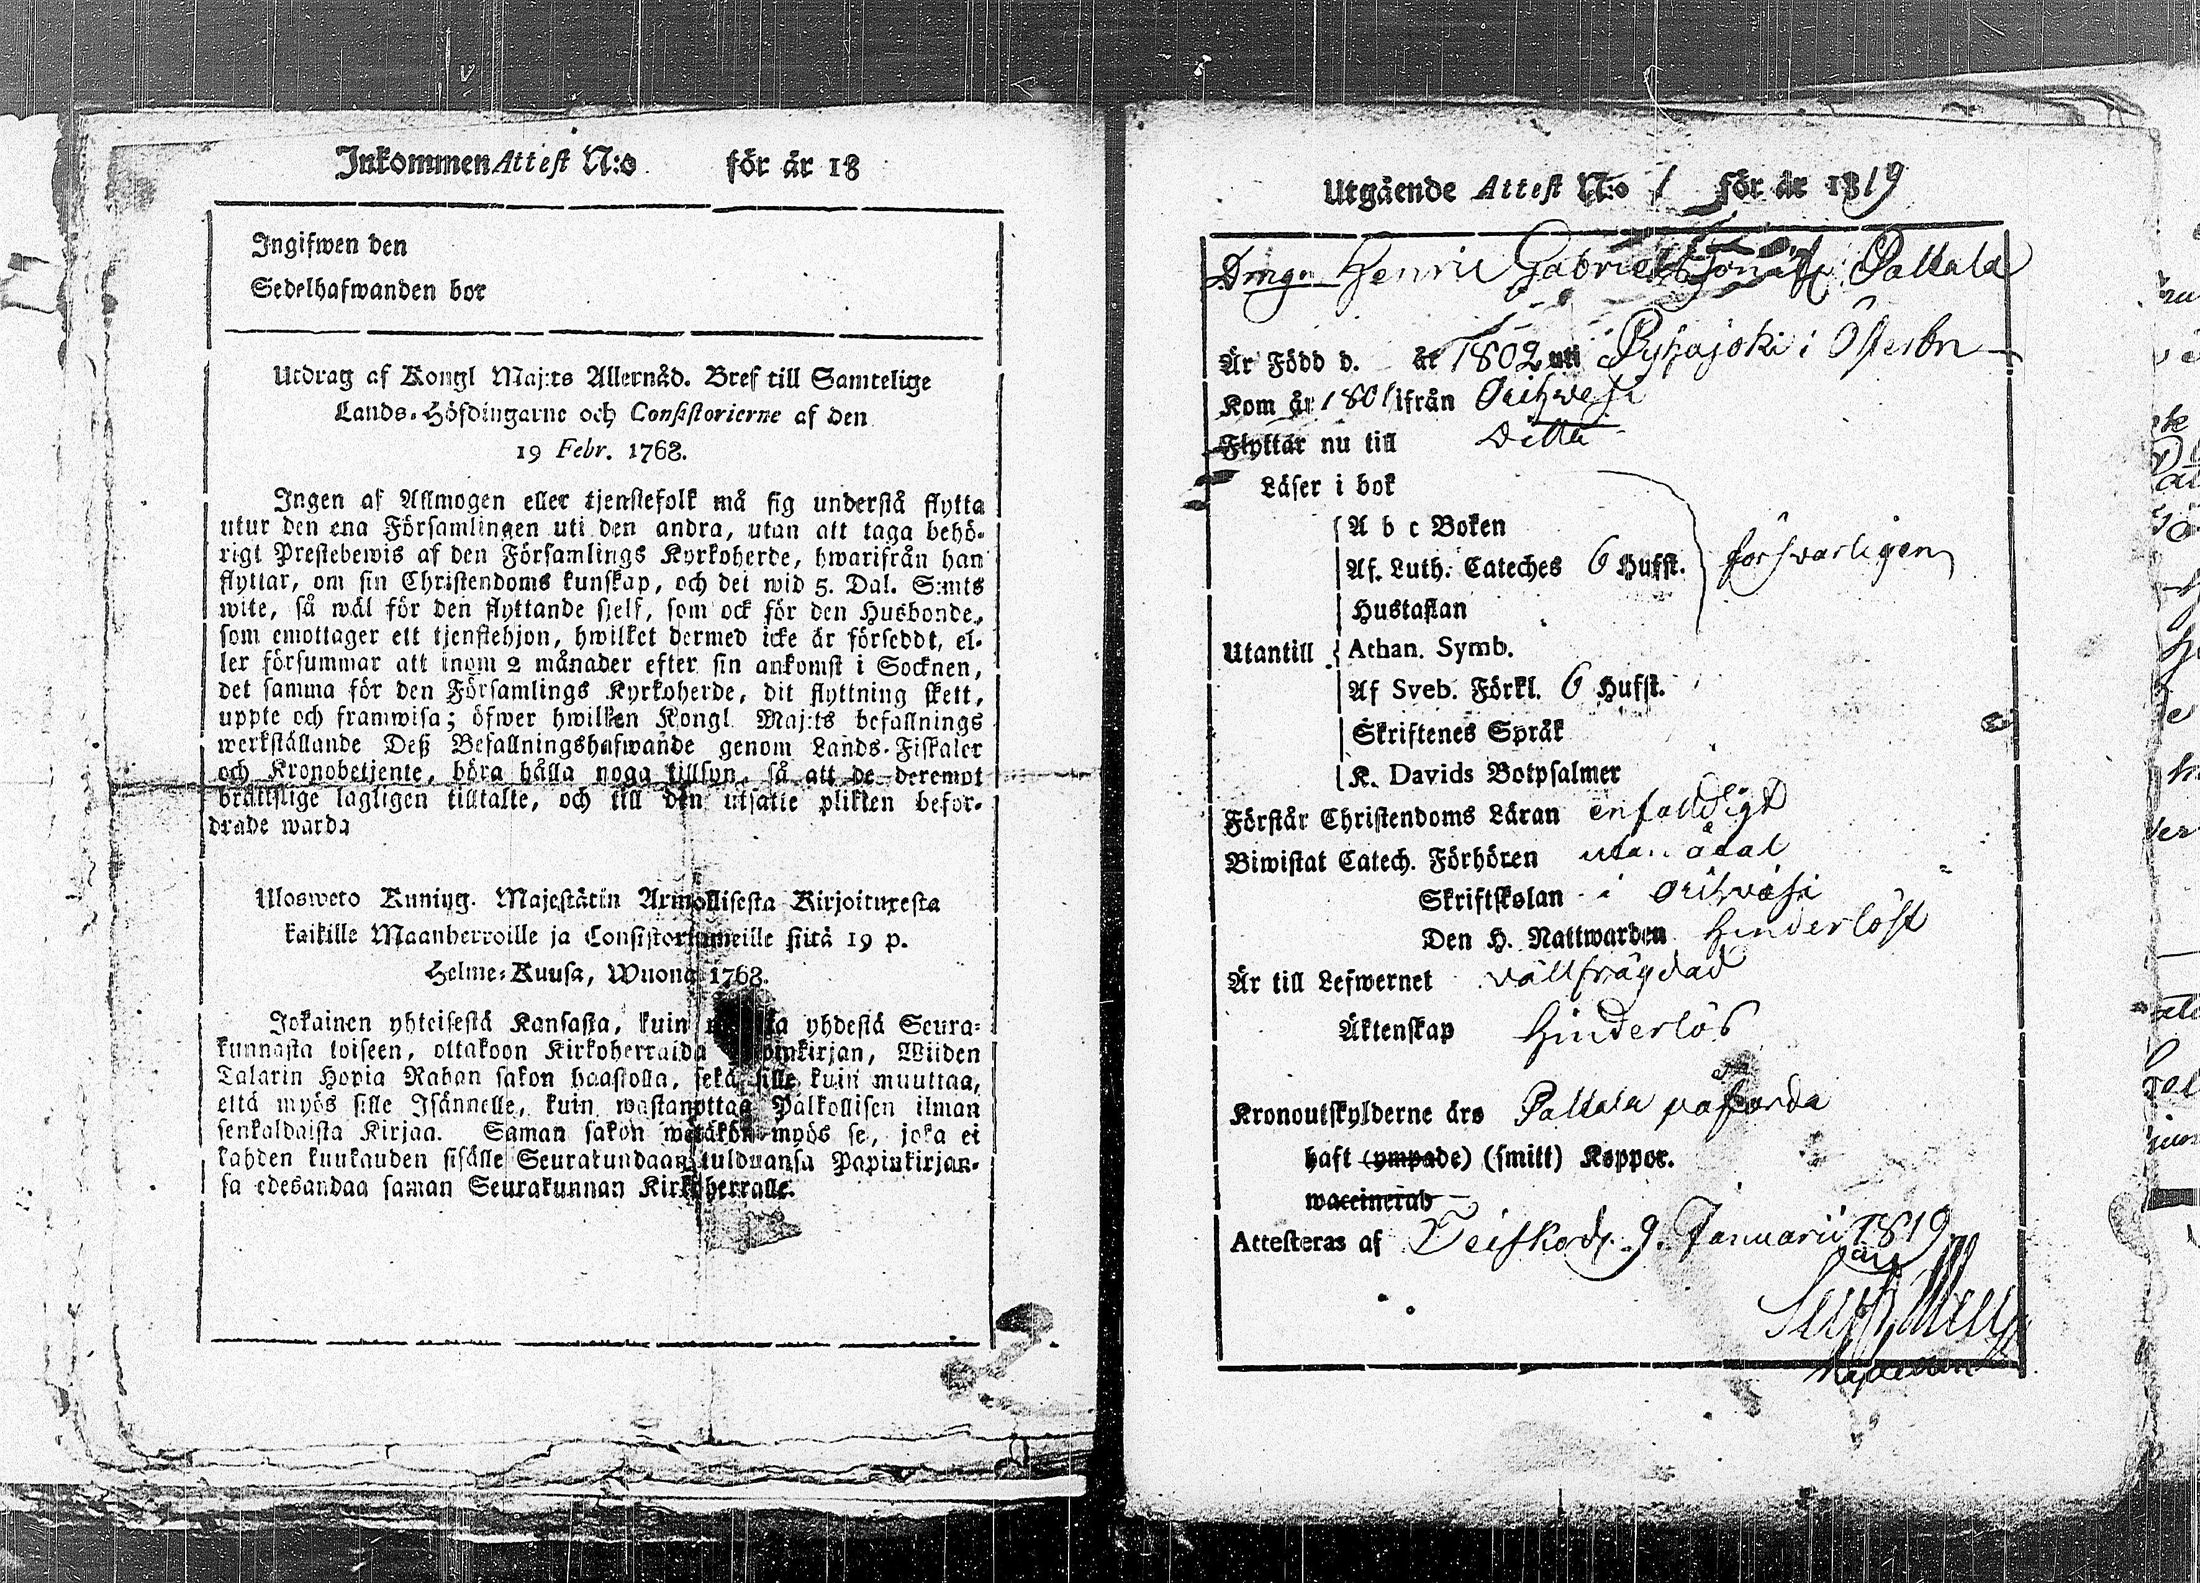 Inkommen Attest N:o för år 18
Ingifwen den
Sedelhafwanden bor
Utdrag af Kongl Maj:ts Allernåd. Bref till Samtelige
Lands-Höfdingarne och Consistorierne af den
19 Febr. 1768.
Ingen af Allmogen eller tjenstefolk må sig understå flytta
utur den ena Församlingen uti den andra, utan att taga behö-
rigt Prestebewis af den Församlings Kyrkoherde, hwarifrån han
flyttar, om sin Christendoms kunskap, och det wid 5. Dal. S:mts
wite, så wäl för den flyttande sjelf, som ock för den Husbonde,
som emottager ett tjenstehjon, hwilket dermed icke är försedt, el-
ler försummar att inom 2 månader efter sin ankomst i Socknen,
det samma för den Församlings Kyrkoherde, dit flyttning skett,
uppte och framwisa; öfwer hwilken Kongl. Maj:ts befallnings
werkställande Deß Befallningshafwande genom Lands-Fiskaler
och Kronobetjente, böra hålla noga tillsyn, så att de deremot
brottslige lagligen tilltalte, och till den utsatte plikten befor-
drade warda
Ulosweto Kuning. Majestätin Armollisesta Kirjoituxesta
kaikille Maanherroille ja Consistoriumeille siitä 19 p.
Helme-Kuusa, Wuona 1768.
Jokainen yhteisestä Kansasta, kuin yhdestä Seura-
kunnasta toiseen, ottakoon Kirkoherralda Wiiden
Talarin Hopia Rahan sakon haastolla, sekä sille kuin muuttaa,
että myös sille Isännelle, kuin wastanottaa Palkollisen ilman
senkaldaista Kirjaa. Saman sakon wetäkön myös se, joka ei
kahden kuukauden sisälle Seurakundaan tulduansa Papinkirjan-
sa edesandaa saman Seurakunnan Kirkoherralle.
Utgående Attest N:o 1 för år 1819
Drng. Henric Gabriel Pattala
Är Född d. år 1802 uti Pyhäjoki i Österbn
Kom år 1801 ifrån Orihwesi
Flyttar nu till Ditto
Läser i bok
A b c Boken
Af. Luth. Cateches 6 Hufst. försvarligen
Hustaflan
Utantill Athan. Symb.
Af Sveb. Förkl. 6 Hufst.
Skriftenes Språk
K. Davids Botpsalmer
Förstår Christendoms Läran enfaldigt
Biwistat Catech. Förhören utan åtal
Skriftskolan i Orihväsi
Den H. Nattwarden hinderlöst
Är till Lefwernet välfrägdad
Äktenskap hinderlös
Kronoutskylderne äro Pattala påförda
haft (ympade) (smitt) Koppor.
waccinerad
Attesteras af Teiskola 9. Januarii 1819